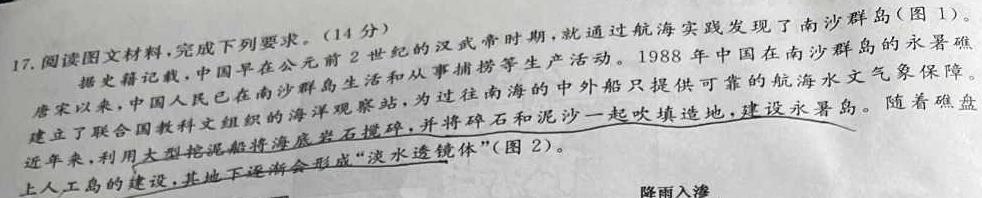 17. 阅读图文材料,完成下列要求。(14 分)
据史籍记载,中国早在公元前 2 世纪的汉武帝时期,就通过航海实践发现了南沙群岛(图 1)。
唐宋以来,中国人民已在南沙群岛生活和从事捕捞等生产活动。1988 年中国在南沙群岛的永暑礁
建立了联合国教科文组织的海洋观察站,为过往南海的中外船只提供可靠的航海水文气象保障。
近年来,利用大型挖泥船将海底岩石搅碎,并将碎石和泥沙一起吹填造地,建设永暑岛。随着礁盘
上人工岛的建设,其地下逐渐会形成“淡水透镜体”(图 2)。
降雨入渗